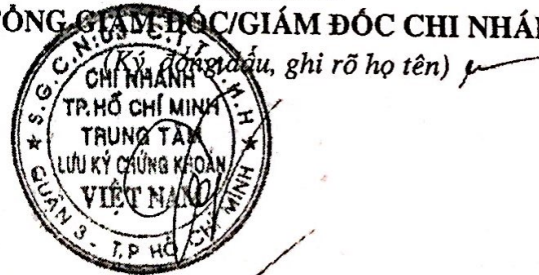 TỔNG GIÁM ĐỐC/GIÁM ĐỐC CHI NHÁN
(Ký, đóng dấu, ghi rõ họ tên)
CHI NHÁNH
TP.HỒ CHÍ MINH
TRUNG TÂM
LƯU KÝ CHỨNG KHOÁN
VIỆT NAM
QUẬN 3 - T.P HỒ CHÍ MINH